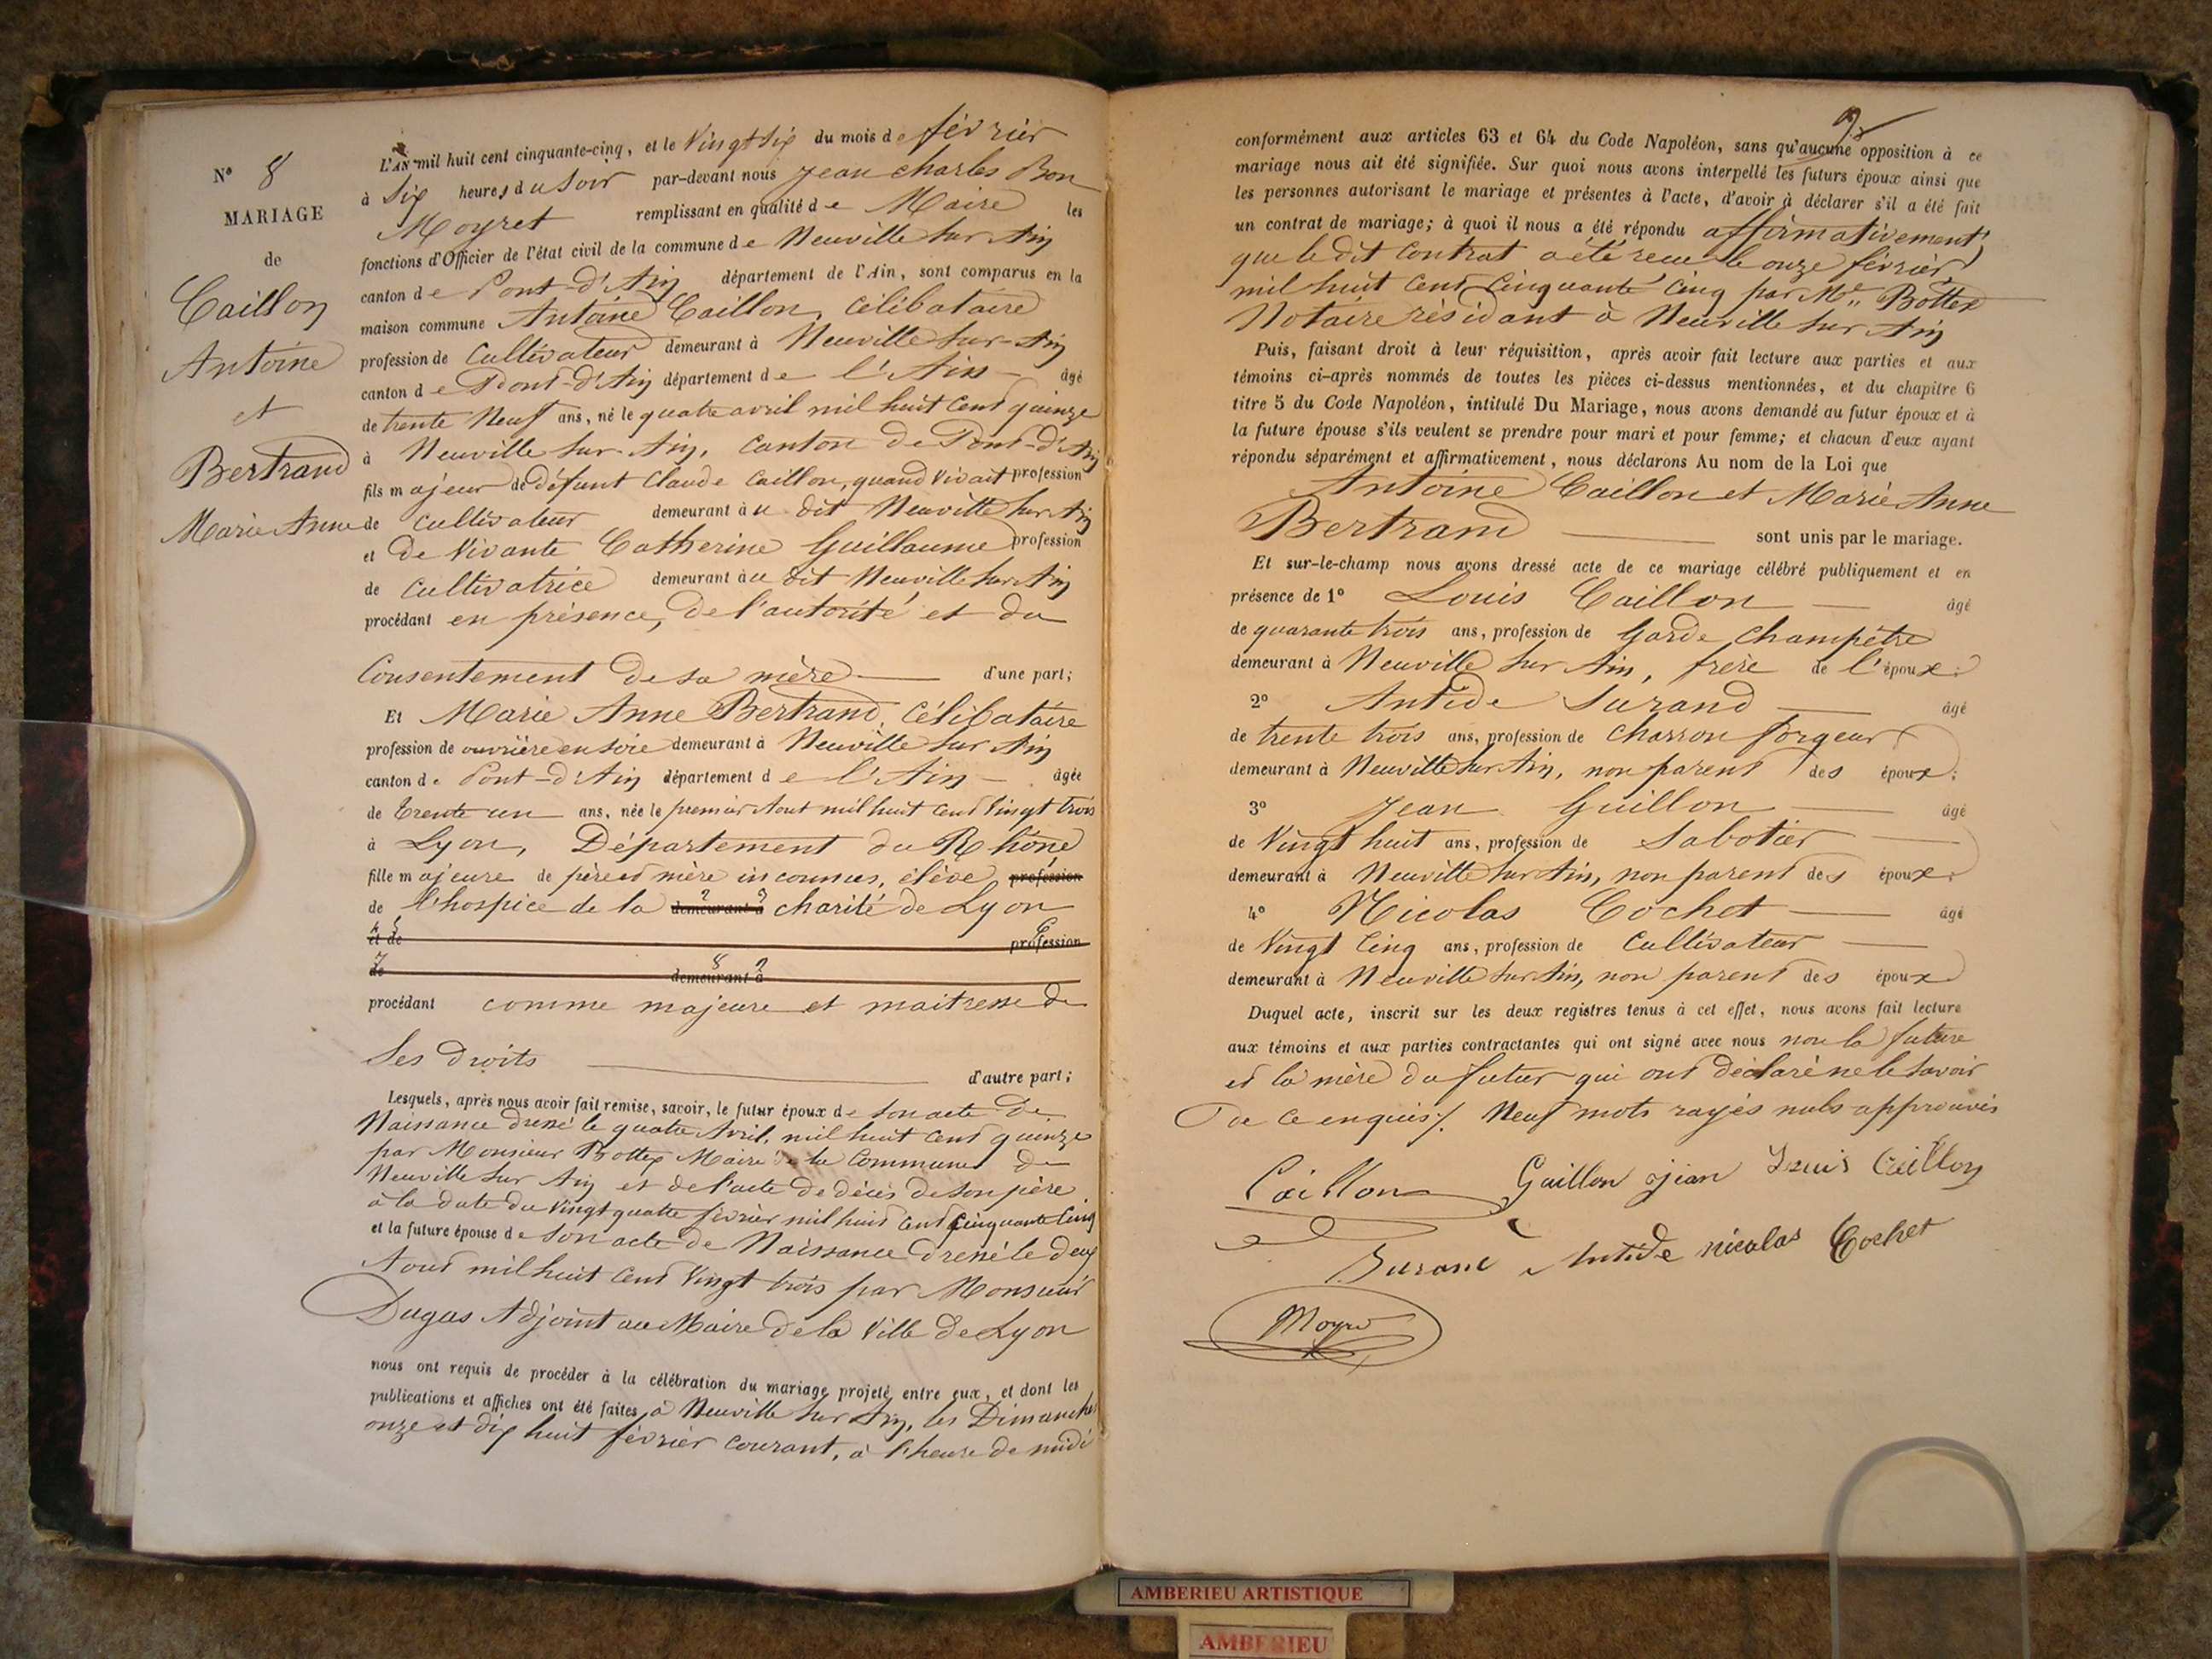 N° 8
MARIAGE
de
Caillon
Antoine
et
Bertrand
Marie Anne
L'AN mil huit cent cinquante-cinq, et le Vingt Six du mois de février
à Six heures du Soir par-devant nous Jean Charles Bon
Moyret remplissant en qualité de Maire les
fonctions d'Officier de l'état civil de la commune de Neuville sur Ain
canton de Pont-d'Ain département de l'Ain, sont comparus en la
maison commune Antoine Caillon, Célibataire
profession de Cultivateur demeurant à Neuville sur-Ain
canton de Pont-d'Ain département de l'Ain âgé
de trente Neuf ans, né le quatre avril mil huit Cent quinze
à Neuville sur-Ain, Canton de Pont-d'Ain
fils majeur de défunt Claude Caillon, quand vivait profession
de Cultivateur demeurant au dit Neuville sur Ain
et De Vivante Catherine Guillaume profession
de Cultivatrice demeurant au dit Neuville sur Ain
procédant en présence, De l'autorité et du
Consentement De sa mère d'une part;
Et Marie Anne Bertrand, Célibataire
profession de ouvrière en soie demeurant à Neuville sur Ain
canton de Pont-d'Ain département de l'Ain âgée
de Trente un ans, née le premier Aout mil huit Cent Vingt trois
à Lyon, Département du Rhône
fille majeure de père et mère inconnus, élève profession
de l'hospice de la demeurant à charité de Lyon
et de profession
de demeurant à
procédant comme majeure et maitresse de
Ses Droits d'autre part;
Lesquels, après nous avoir fait remise, savoir, le futur époux de son acte De
Naissance dressé le quatre Avril, mil huit Cent quinze
par Monsieur Bottex Maire de la Commune De
Neuville sur Ain et de l'acte De décès De son père
à la date du Vingt quatre février mil huit Cent Cinquante Cinq
et la future épouse de son acte De Naissance dressé le deux
Aout mil huit Cent Vingt trois par Monsieur
Dugas Adjoint au Maire De la Ville De Lyon
nous ont requis de procéder à la célébration du mariage projeté entre eux, et dont les
publications et affiches ont été faites à Neuville sur Ain, les Dimanches
onze et dix huit février courant, à l'heure de midi
conformément aux articles 63 et 64 du Code Napoléon, sans qu'aucune opposition à ce
mariage nous ait été signifiée. Sur quoi nous avons interpellé les futurs époux ainsi que
les personnes autorisant le mariage et présentes à l'acte, d'avoir à déclarer s'il a été fait
un contrat de mariage; à quoi il nous a été répondu affirmativement
que le dit Contrat a été recu le onze février
mil huit Cent Cinquante Cinq par Me Bottex
Notaire résidant à Neuville sur Ain
Puis, faisant droit à leur réquisition, après avoir fait lecture aux parties et aux
témoins ci-après nommés de toutes les pièces ci-dessus mentionnées, et du chapitre 6
titre 5 du Code Napoléon, intitulé Du Mariage, nous avons demandé au futur époux et à
la future épouse s'ils veulent se prendre pour mari et pour femme; et chacun d'eux ayant
répondu séparément et affirmativement, nous déclarons Au nom de la Loi que
Antoine Caillon et Marie Anne
Bertrand sont unis par le mariage.
Et sur-le-champ nous avons dressé acte de ce mariage célébré publiquement et en
présence de 1° Louis Caillon âgé
de quarante trois ans, profession de Garde Champêtre
demeurant à Neuville sur Ain, frère de l'époux;
2° Antide Durand âgé
de trente trois ans, profession de Charron forgeur
demeurant à Neuville sur Ain, non parent des époux;
3° Jean Guillon âgé
de Vingt huit ans, profession de Sabotier
demeurant à Neuville sur Ain, non parent des époux;
4° Nicolas Cochet âgé
de Vingt Cinq ans, profession de Cultivateur
demeurant à Neuville sur Ain, non parent des époux
Duquel acte, inscrit sur les deux registres tenus à cet effet, nous avons fait lecture
aux témoins et aux parties contractantes qui ont signé avec nous non la future
et la mère du futur qui ont déclaré ne le savoir
De ce enquis/. Neuf mots rayés nuls approuvés
Caillon Guillon Jean Louis Caillon
Durand Antide nicolas Cochet
Moyret
AMBERIEU ARTISTIQUE
AMBERIEU